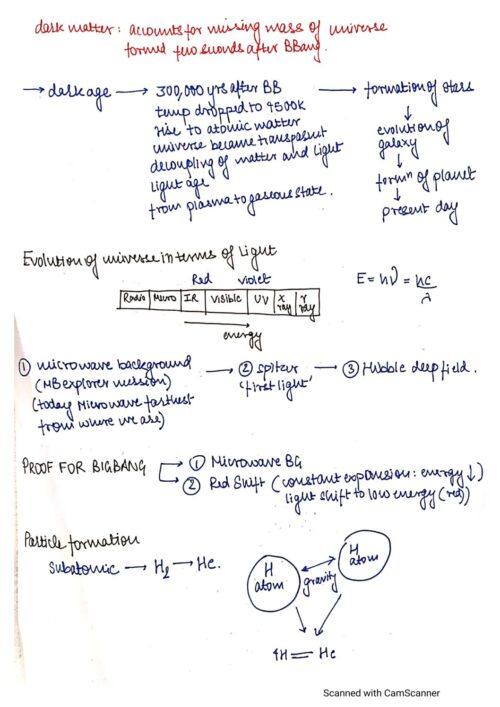 dark matter: accounts for missing mass of universe
formed two seconds after BBang.
→ dark age → 300,000 yrs after BB → formation of stars
temp dropped to 4500k
rise to atomic matter
universe became transparent
decoupling of matter and light
light age
from plasma to gaseous state.
↓
evolution of
galaxy
↓
formⁿ of planet
↓
present day
Evolution of universe in terms of light
Red violet
Radio Micro IR Visible UV X ray γ ray
energy
E = hν = hc/λ
① microwave background → ② spitzer → ③ Hubble deep field.
(MB explorer mission) 'first light'
(today Microwave farthest
from where we are)
PROOF FOR BIGBANG → ① Microwave BG
→ ② Red Shift (constant expansion: energy ↓)
light shift to low energy (red))
Particle formation
Subatomic → H₂ → He.
H
atom
gravity
H
atom
4H = He
Scanned with CamScanner